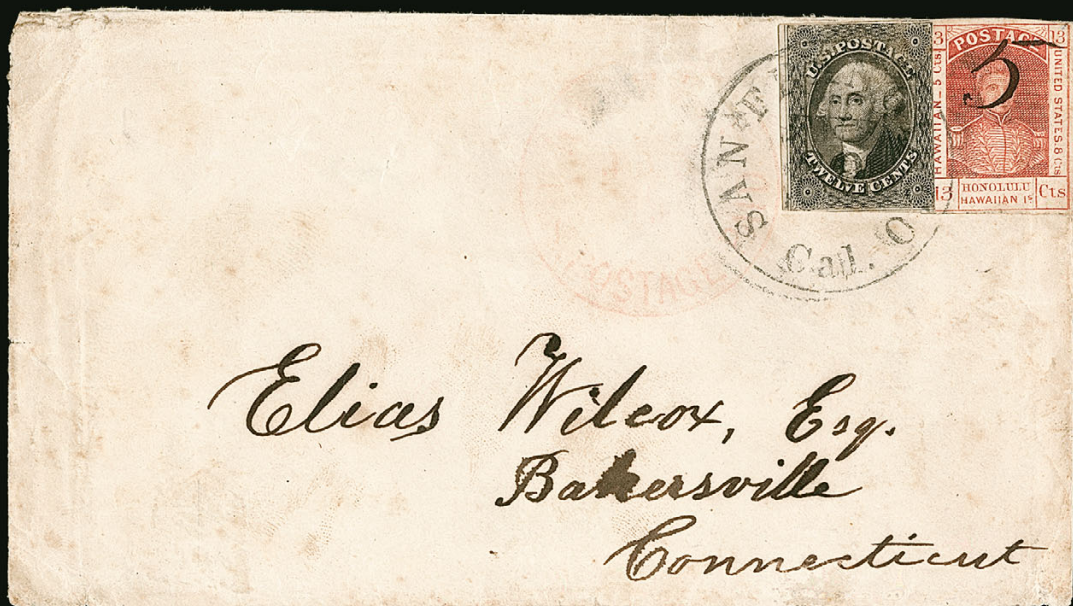 U.S. POSTAGE
TWELVE CENTS
13 POSTAGE 13
HAWAIIAN_5 Cts
UNITED STATES.8 Cts
5
13 HONOLULU HAWAIIAN Is Cts
SAN
Cal.
POSTAGE
Elias Wilcox, Esq.
Bakersville
Connecticut